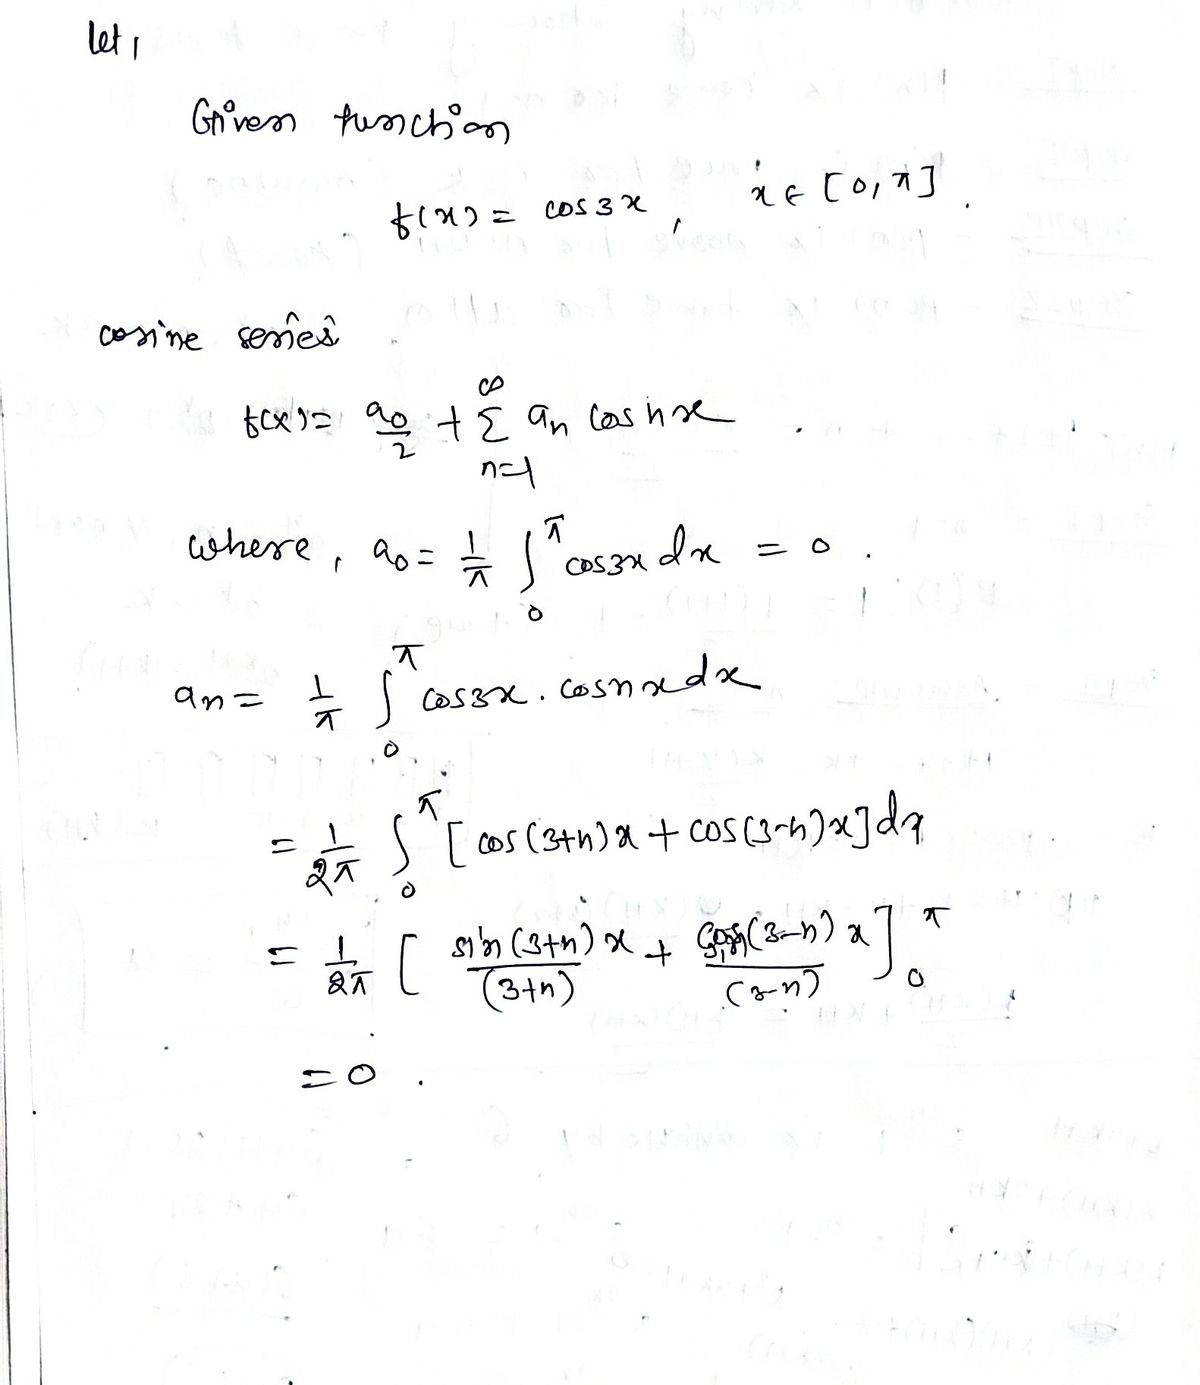 let,
Given function
f(x) = cos3x, x ∈ [0, π].
cosine series
f(x) = a₀/2 + ∑_{n=1}^{∞} aₙ cos nx.
where, a₀ = 1/π ∫₀^π cos3x dx = 0.
aₙ = 1/π ∫₀^π cos3x . cosnx dx
= 1/2π ∫₀^π [cos(3+n)x + cos(3-n)x] dx
= 1/2π [ sin(3+n)x/(3+n) + sin(3-n)x/(3-n) ]₀^π
= 0.